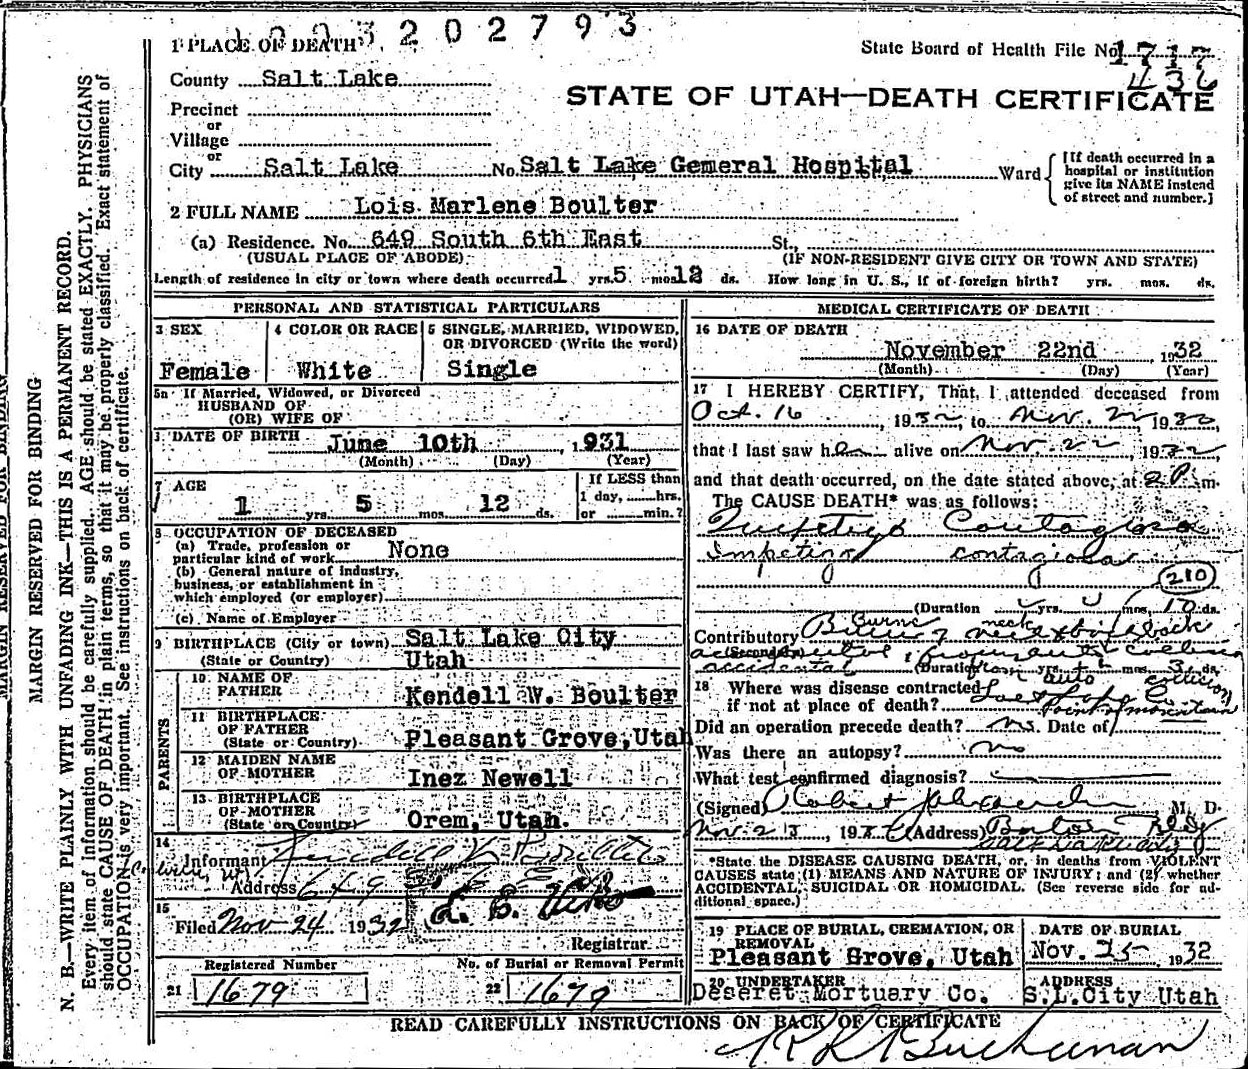 1003202793
1 PLACE OF DEATH
State Board of Health File No. 1717
436
County Salt Lake
STATE OF UTAH—DEATH CERTIFICATE
Precinct
or
Village
or
City Salt Lake No. Salt Lake Gemeral Hospital Ward
[If death occurred in a
hospital or institution
give its NAME instead
of street and number.]
2 FULL NAME Lois Marlene Boulter
(a) Residence. No. 649 South 6th East St.,
(USUAL PLACE OF ABODE)
(IF NON-RESIDENT GIVE CITY OR TOWN AND STATE)
Length of residence in city or town where death occurred 1 yrs. 5 mos. 12 ds. How long in U. S., if of foreign birth? yrs. mos. ds.
PERSONAL AND STATISTICAL PARTICULARS
3 SEX
Female
4 COLOR OR RACE
White
5 SINGLE, MARRIED, WIDOWED,
OR DIVORCED (Write the word)
Single
5a If Married, Widowed, or Divorced
HUSBAND OF
(OR) WIFE OF
DATE OF BIRTH June 10th , 1931
(Month) (Day) (Year)
7 AGE
1 yrs. 5 mos. 12 ds.
If LESS than
1 day, hrs.
or min.?
8 OCCUPATION OF DECEASED
(a) Trade, profession or
particular kind of work None
(b) General nature of industry,
business, or establishment in
which employed (or employer)
(c) Name of Employer
9 BIRTHPLACE (City or town) Salt Lake City
(State or Country) Utah
PARENTS
10 NAME OF
FATHER Kendell W. Boulter
11 BIRTHPLACE
OF FATHER
(State or Country) Pleasant Grove, Utah
12 MAIDEN NAME
OF MOTHER Inez Newell
13 BIRTHPLACE
OF MOTHER
(State or Country) Orem, Utah.
14
Informant
Address 649
15
Filed Nov 24 1932
Registrar
Registered Number
21 1679
No. of Burial or Removal Permit
22 1679
MEDICAL CERTIFICATE OF DEATH
16 DATE OF DEATH
November 22nd 1932
(Month) (Day) (Year)
17 I HEREBY CERTIFY, That I attended deceased from
Oct. 16, 1932, to Nov. 22 1932,
that I last saw her alive on Nov. 22, 1932,
and that death occurred, on the date stated above, at 2 P. m.
The CAUSE DEATH* was as follows:
Impetigo Contagiosa
Impetigo contagiosa
210
(Duration yrs. mos. 10 ds.
Contributory Burns of neck
(Secondary)
accidental (Duration yrs. mos. ds.
from auto collision
18 Where was disease contracted
if not at place of death? Point of mountain
Did an operation precede death? no. Date of
Was there an autopsy? no
What test confirmed diagnosis?
(Signed) Robert M. D.
Nov 23, 193 (Address) Boston Bldg
*State the DISEASE CAUSING DEATH, or, in deaths from VIOLENT
CAUSES state (1) MEANS AND NATURE OF INJURY; and (2) whether
ACCIDENTAL, SUICIDAL OR HOMICIDAL. (See reverse side for ad-
ditional space.)
19 PLACE OF BURIAL, CREMATION, OR
REMOVAL
Pleasant Grove, Utah
DATE OF BURIAL
Nov. 25 1932
20 UNDERTAKER
Deseret Mortuary Co.
ADDRESS
S.L.City Utah
READ CAREFULLY INSTRUCTIONS ON BACK OF CERTIFICATE
Buchanan
MARGIN RESERVED FOR BINDING
MARGIN RESERVED FOR BINDING
N. B.—WRITE PLAINLY WITH UNFADING INK—THIS IS A PERMANENT RECORD.
Every item of information should be carefully supplied. AGE should be stated EXACTLY. PHYSICIANS
should state CAUSE OF DEATH in plain terms, so that it may be properly classified. Exact statement of
OCCUPATION is very important. See instructions on back of certificate.